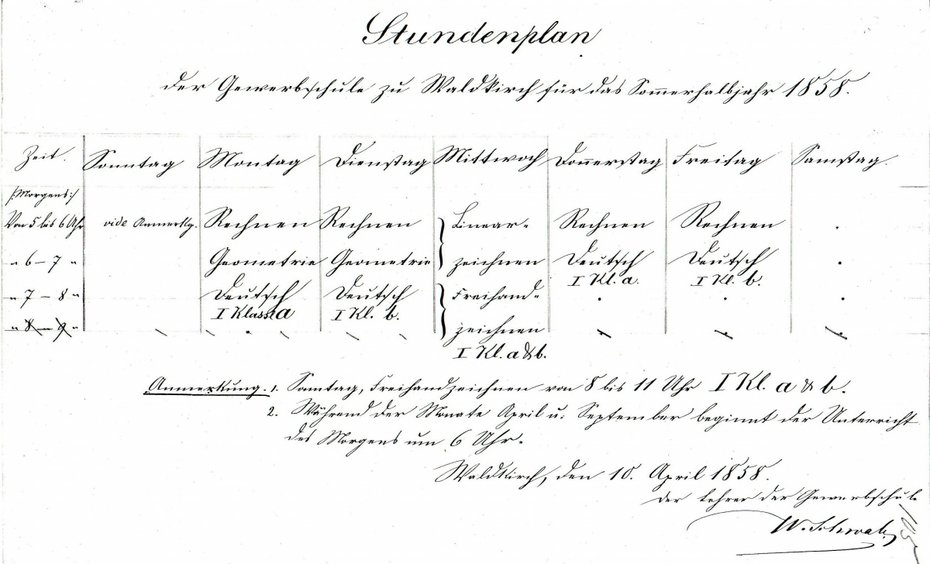 Stundenplan
der Gewerbschule zu Waldkirch für das Sommerhalbjahr 1858.
Zeit. Sonntag Montag Dienstag Mittwoch Donnerstag Freitag Samstag.
/:Morgens:/
Von 5 bis 6 Uhr vide Anmerkg. Rechnen Rechnen Linear- Rechnen Rechnen
" 6 – 7 " Geometrie Geometrie zeichnen Deutsch Deutsch
I Kl. a. I Kl. b.
" 7 – 8 " Deutsch Deutsch Freihand-
I Klasse a I Kl. b.
" 8 – 9 " zeichnen
I Kl. a & b.
Anmerkung. 1. Sonntag, Freihandzeichnen von 8 bis 11 Uhr I Kl. a & b.
2. Während der Monate April u. September beginnt der Unterricht
des Morgens um 6 Uhr.
Waldkirch, den 10. April 1858.
Der Lehrer der Gewerbschule
W. Schwab